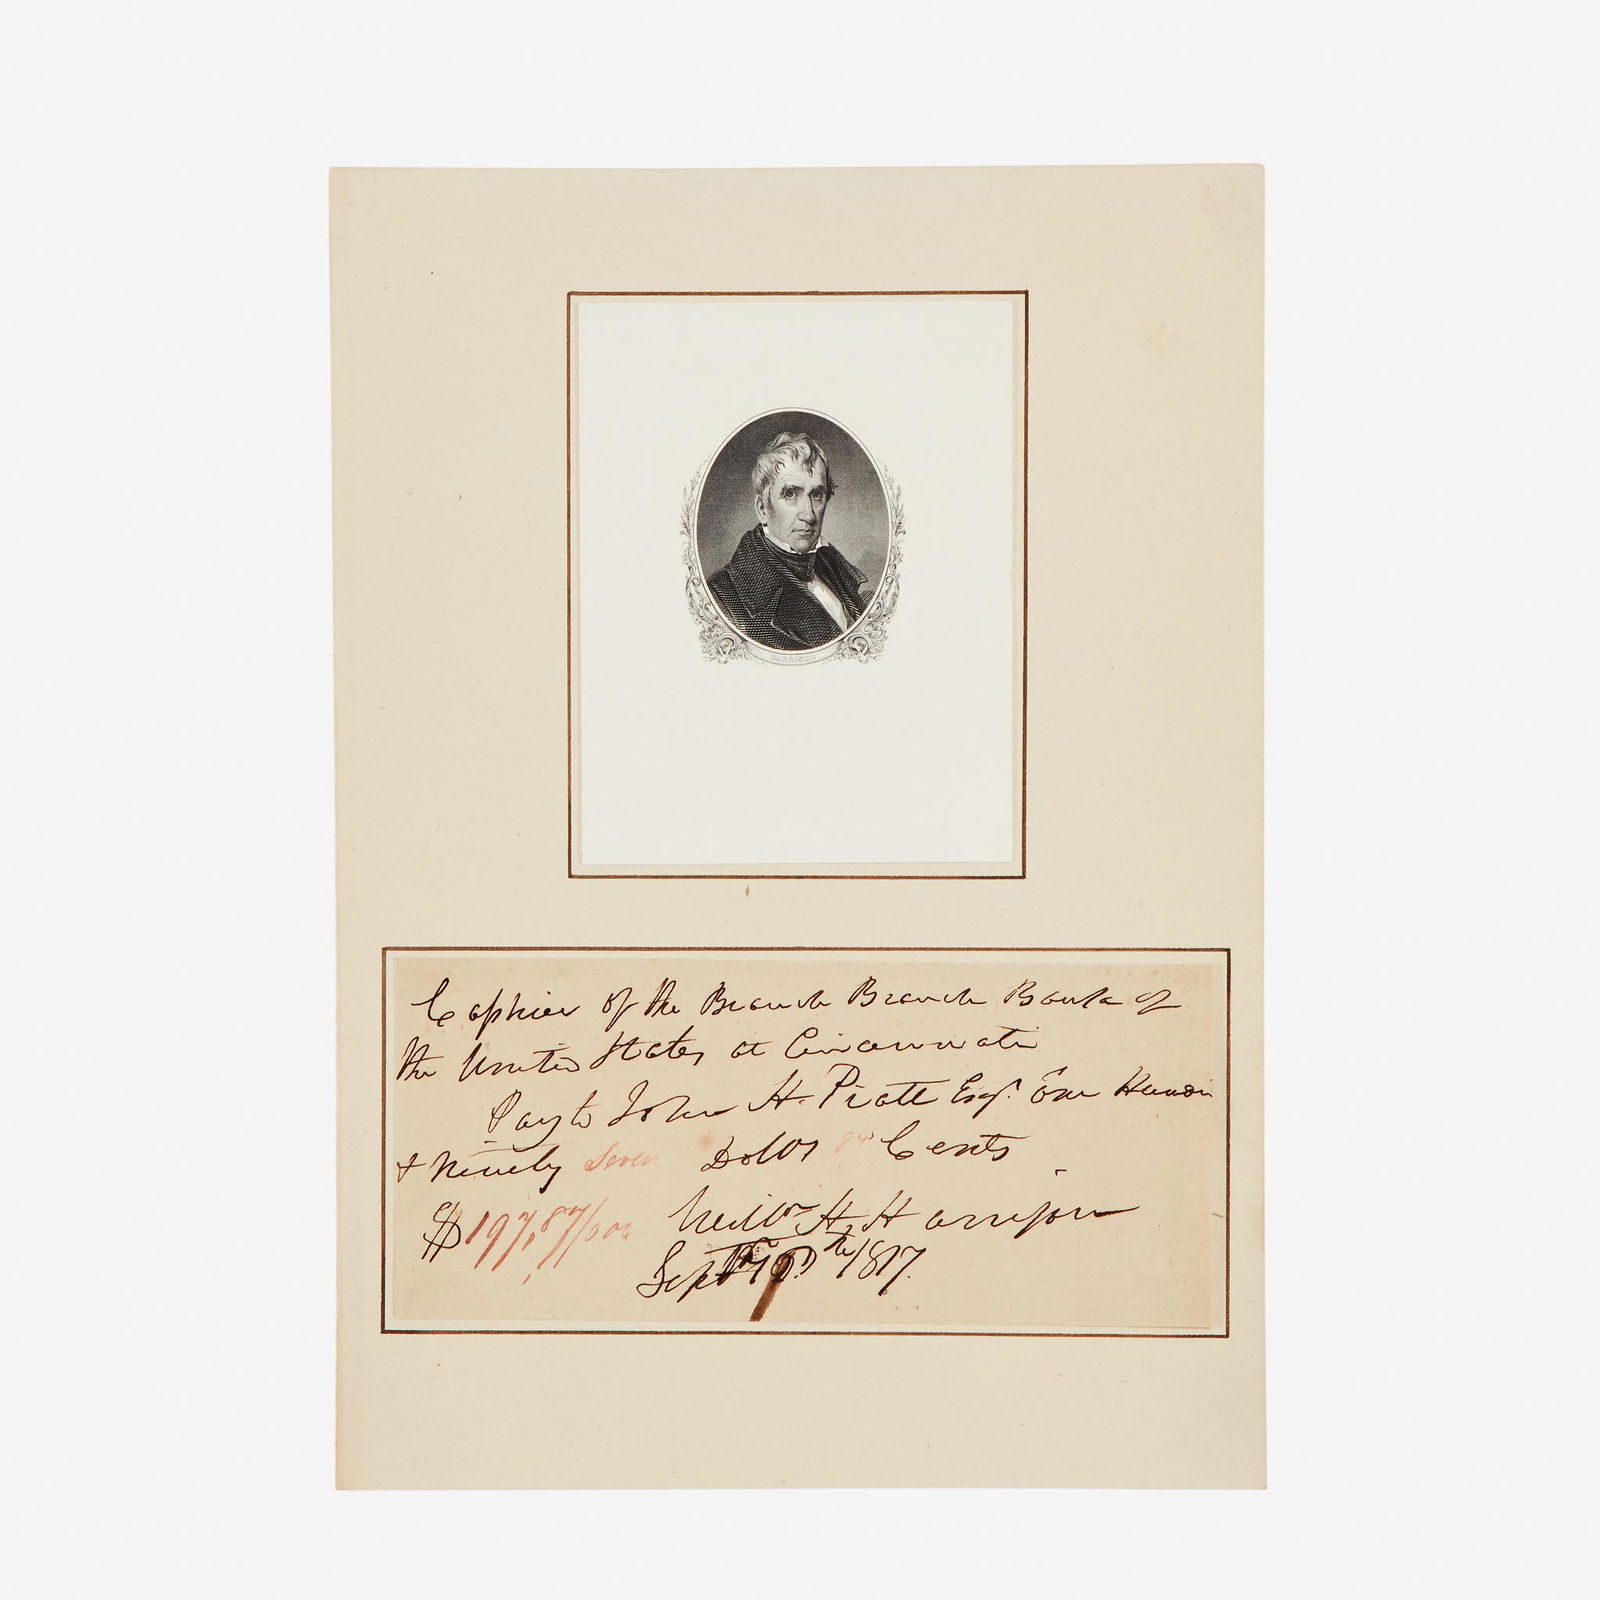 HARRISON
Cashier of the Branch Branch Bank of
the United States at Cincinnati
Pay to John H. Piatt Esqr. One Hundr
& Ninety Seven Dollrs 87 Cents
$197,87/100 Willm H. Harrison
Sept 10th 1817.